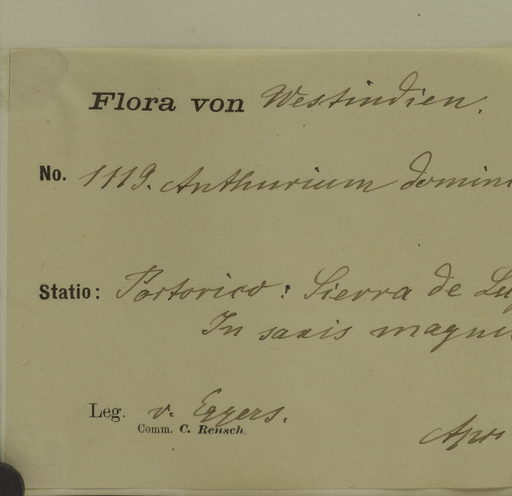 Flora von Westindien.
No. 1119. Anthurium domini
Statio: Portorico: Sierra de Lu
In saxis magni
Leg. v. Eggers.
Comm. C. Rensch.
Apr